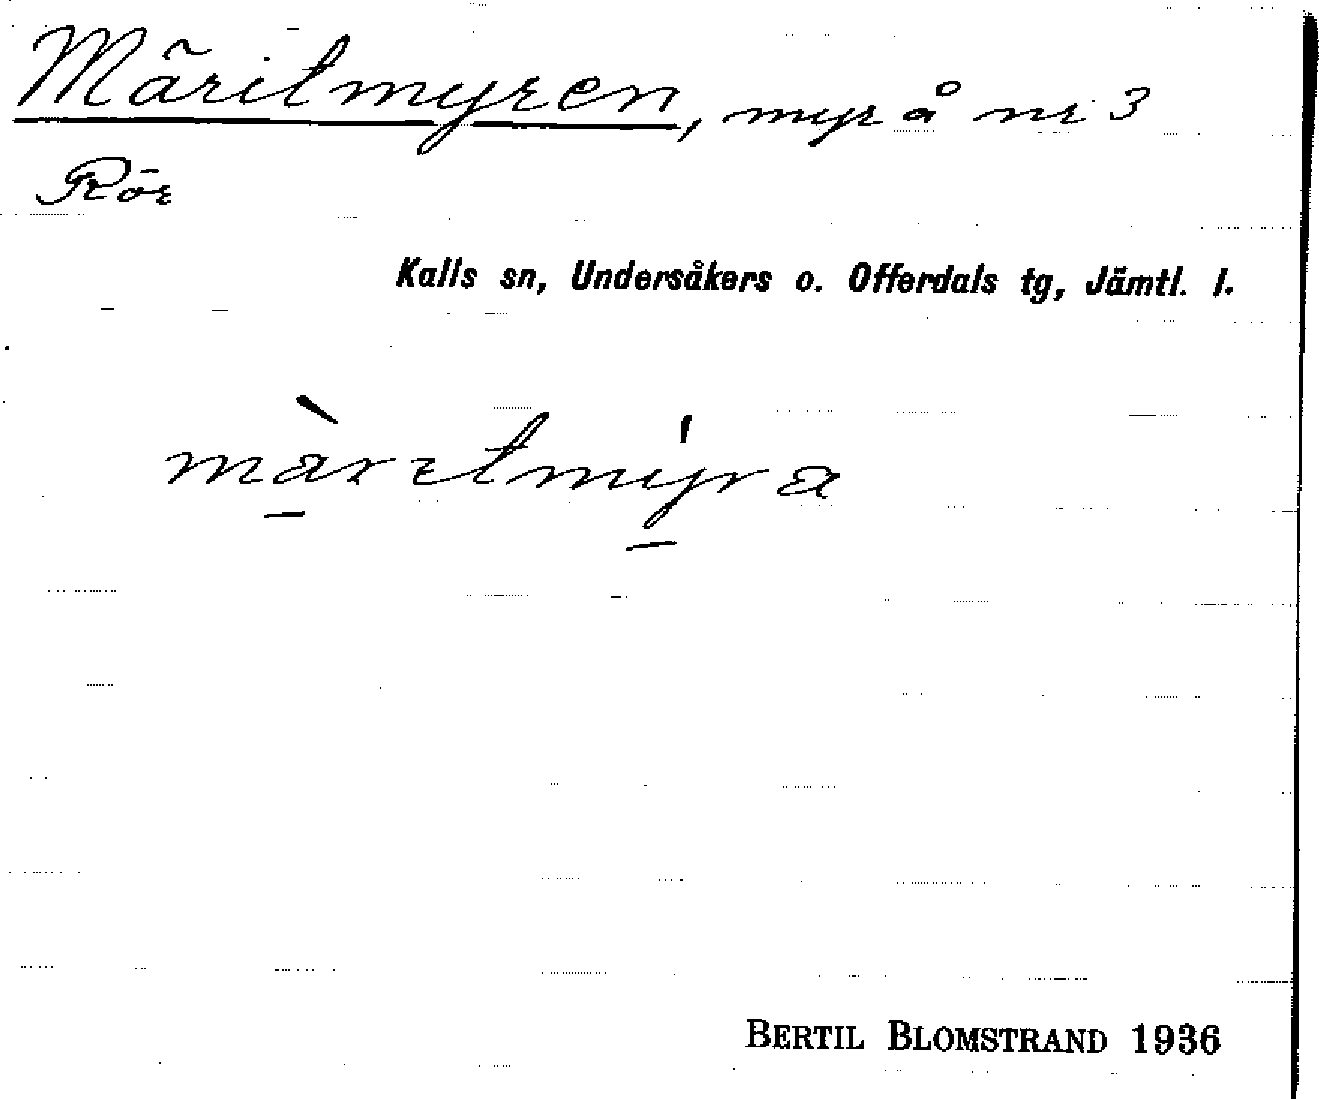 Märitmyren, myr å nr 3
Rör
Kalls sn, Undersåkers o. Offerdals tg, Jämtl. l.
màrɛtmýra
BERTIL BLOMSTRAND 1936